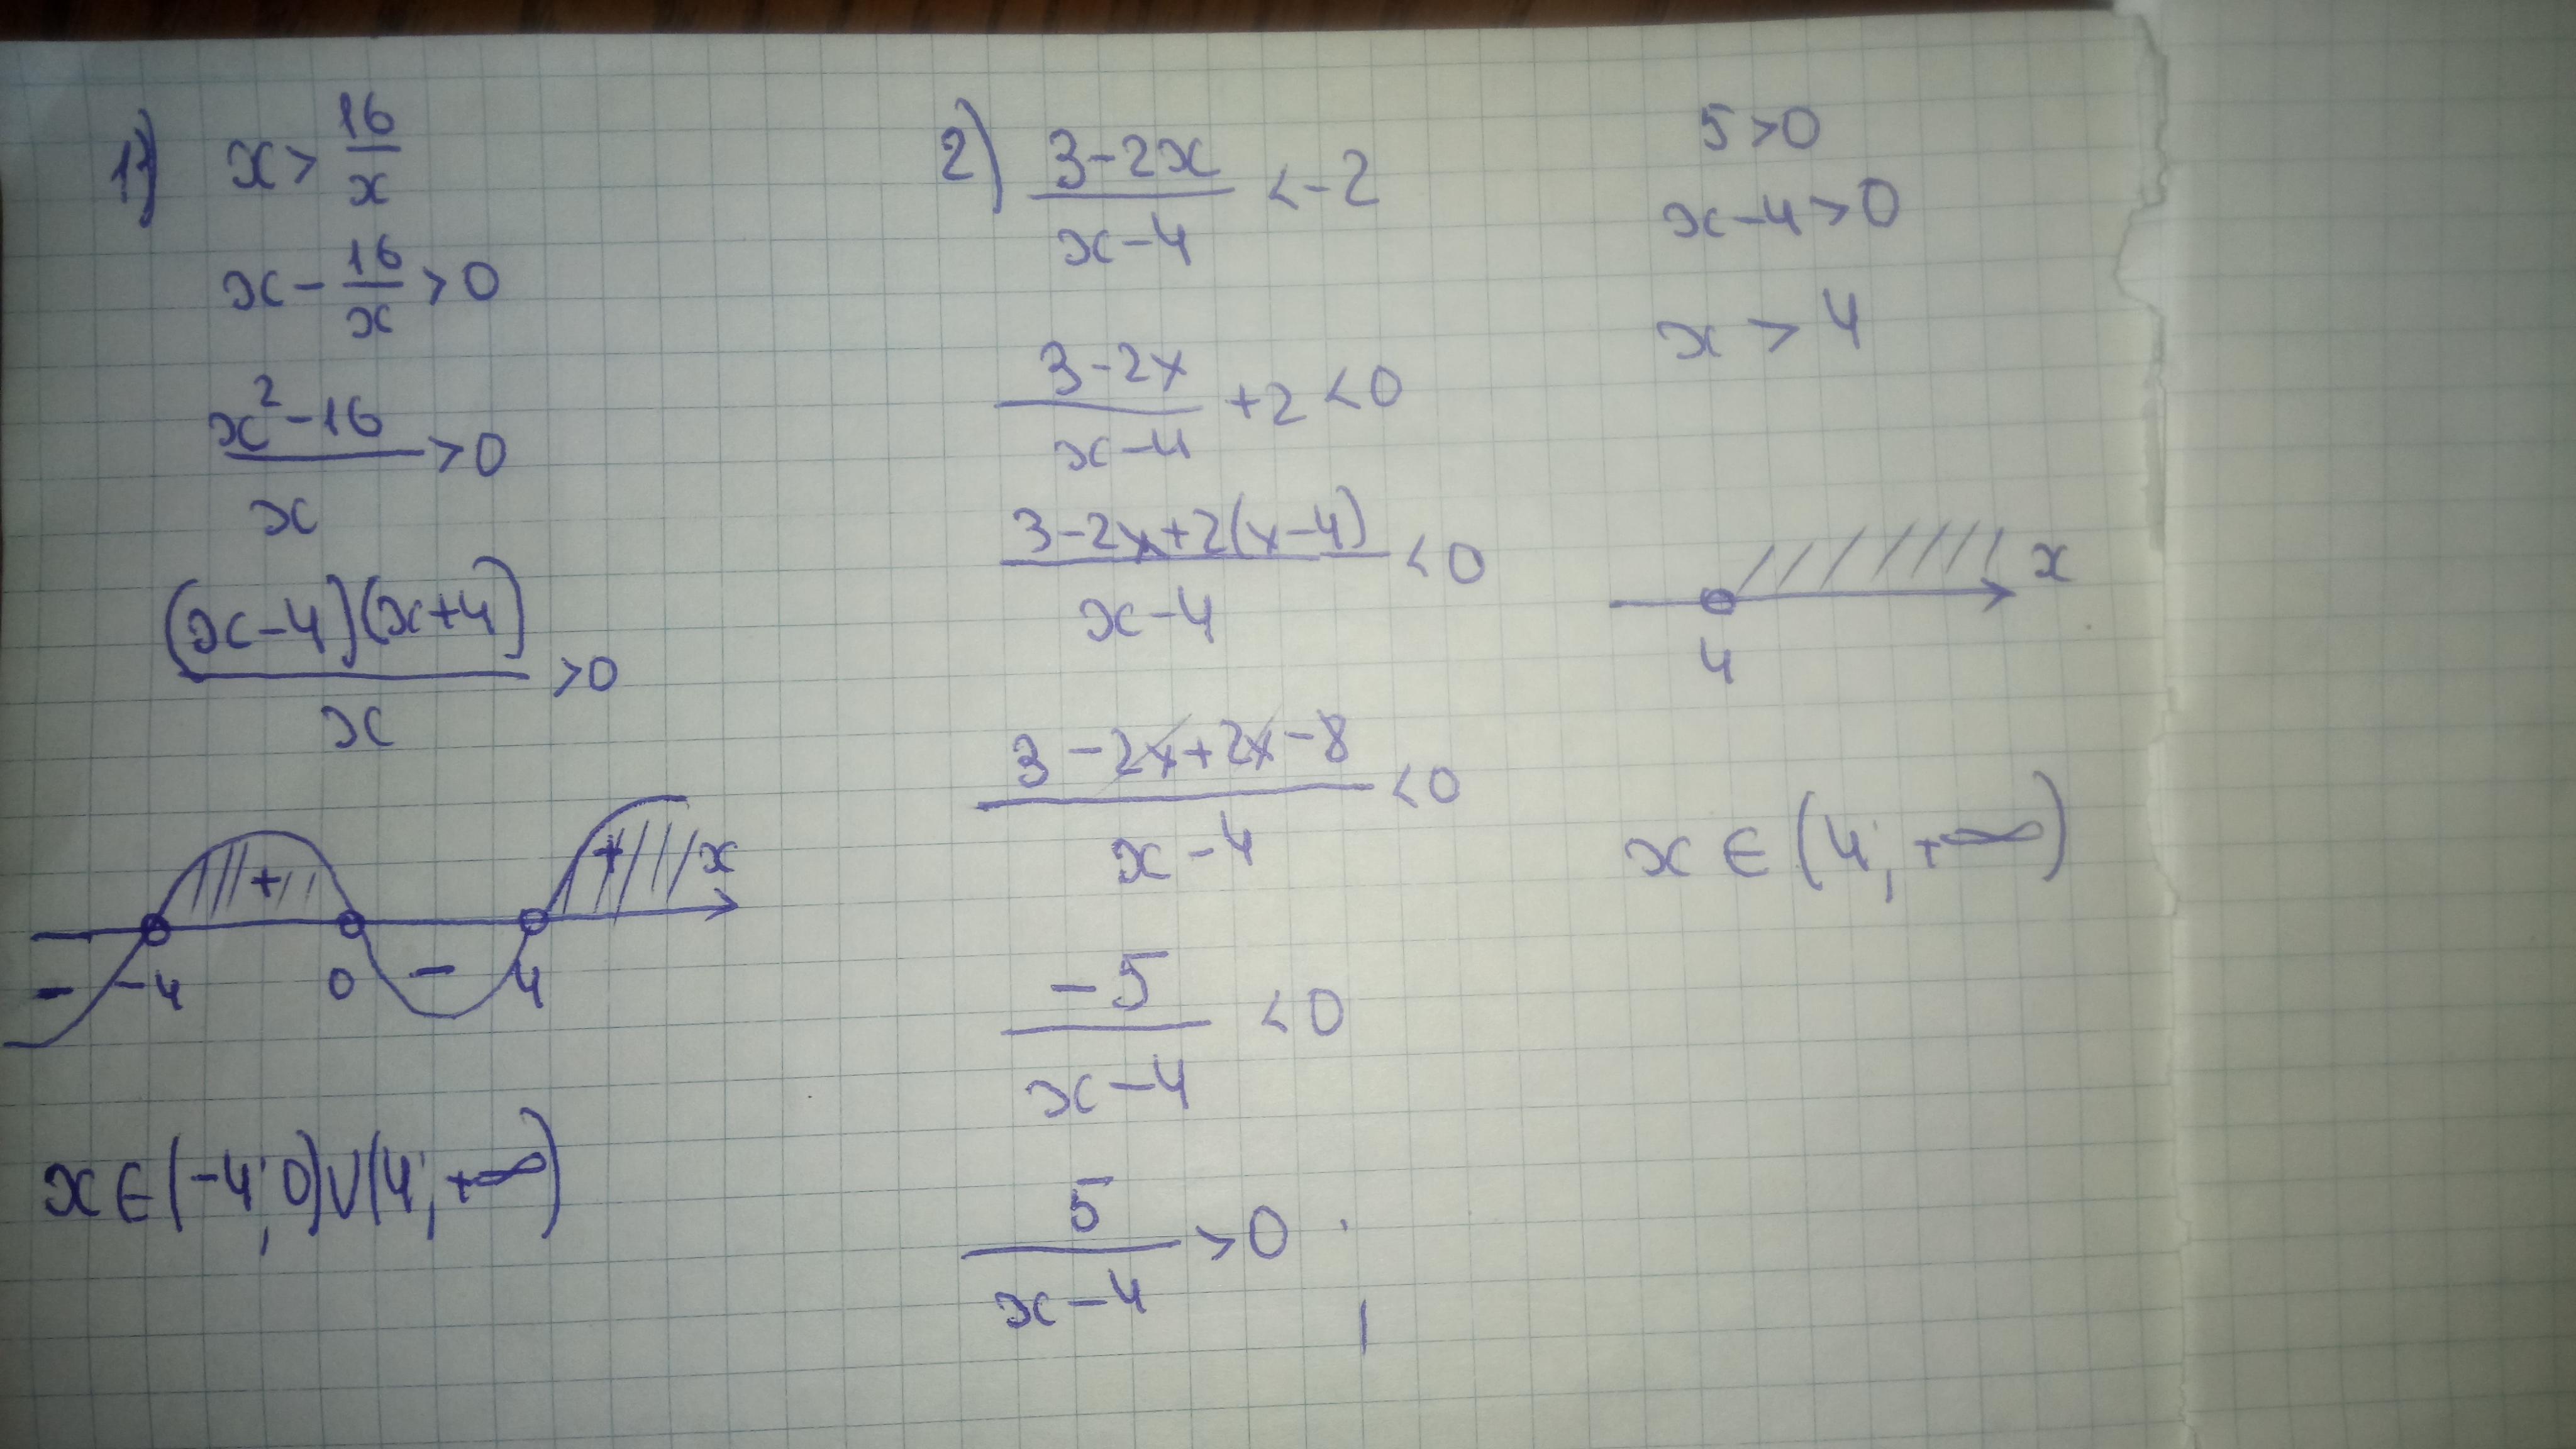 1) x > 16/x
x - 16/x > 0
(x² - 16)/x > 0
(x-4)(x+4)/x > 0
+ + x
- -4 0 - 4
x ∈ (-4; 0) ∪ (4; +∞)
2) (3-2x)/(x-4) < -2
(3-2x)/(x-4) + 2 < 0
(3-2x+2(x-4))/(x-4) < 0
(3-2x+2x-8)/(x-4) < 0
-5/(x-4) < 0
5/(x-4) > 0
5 > 0
x-4 > 0
x > 4
x
4
x ∈ (4; +∞)